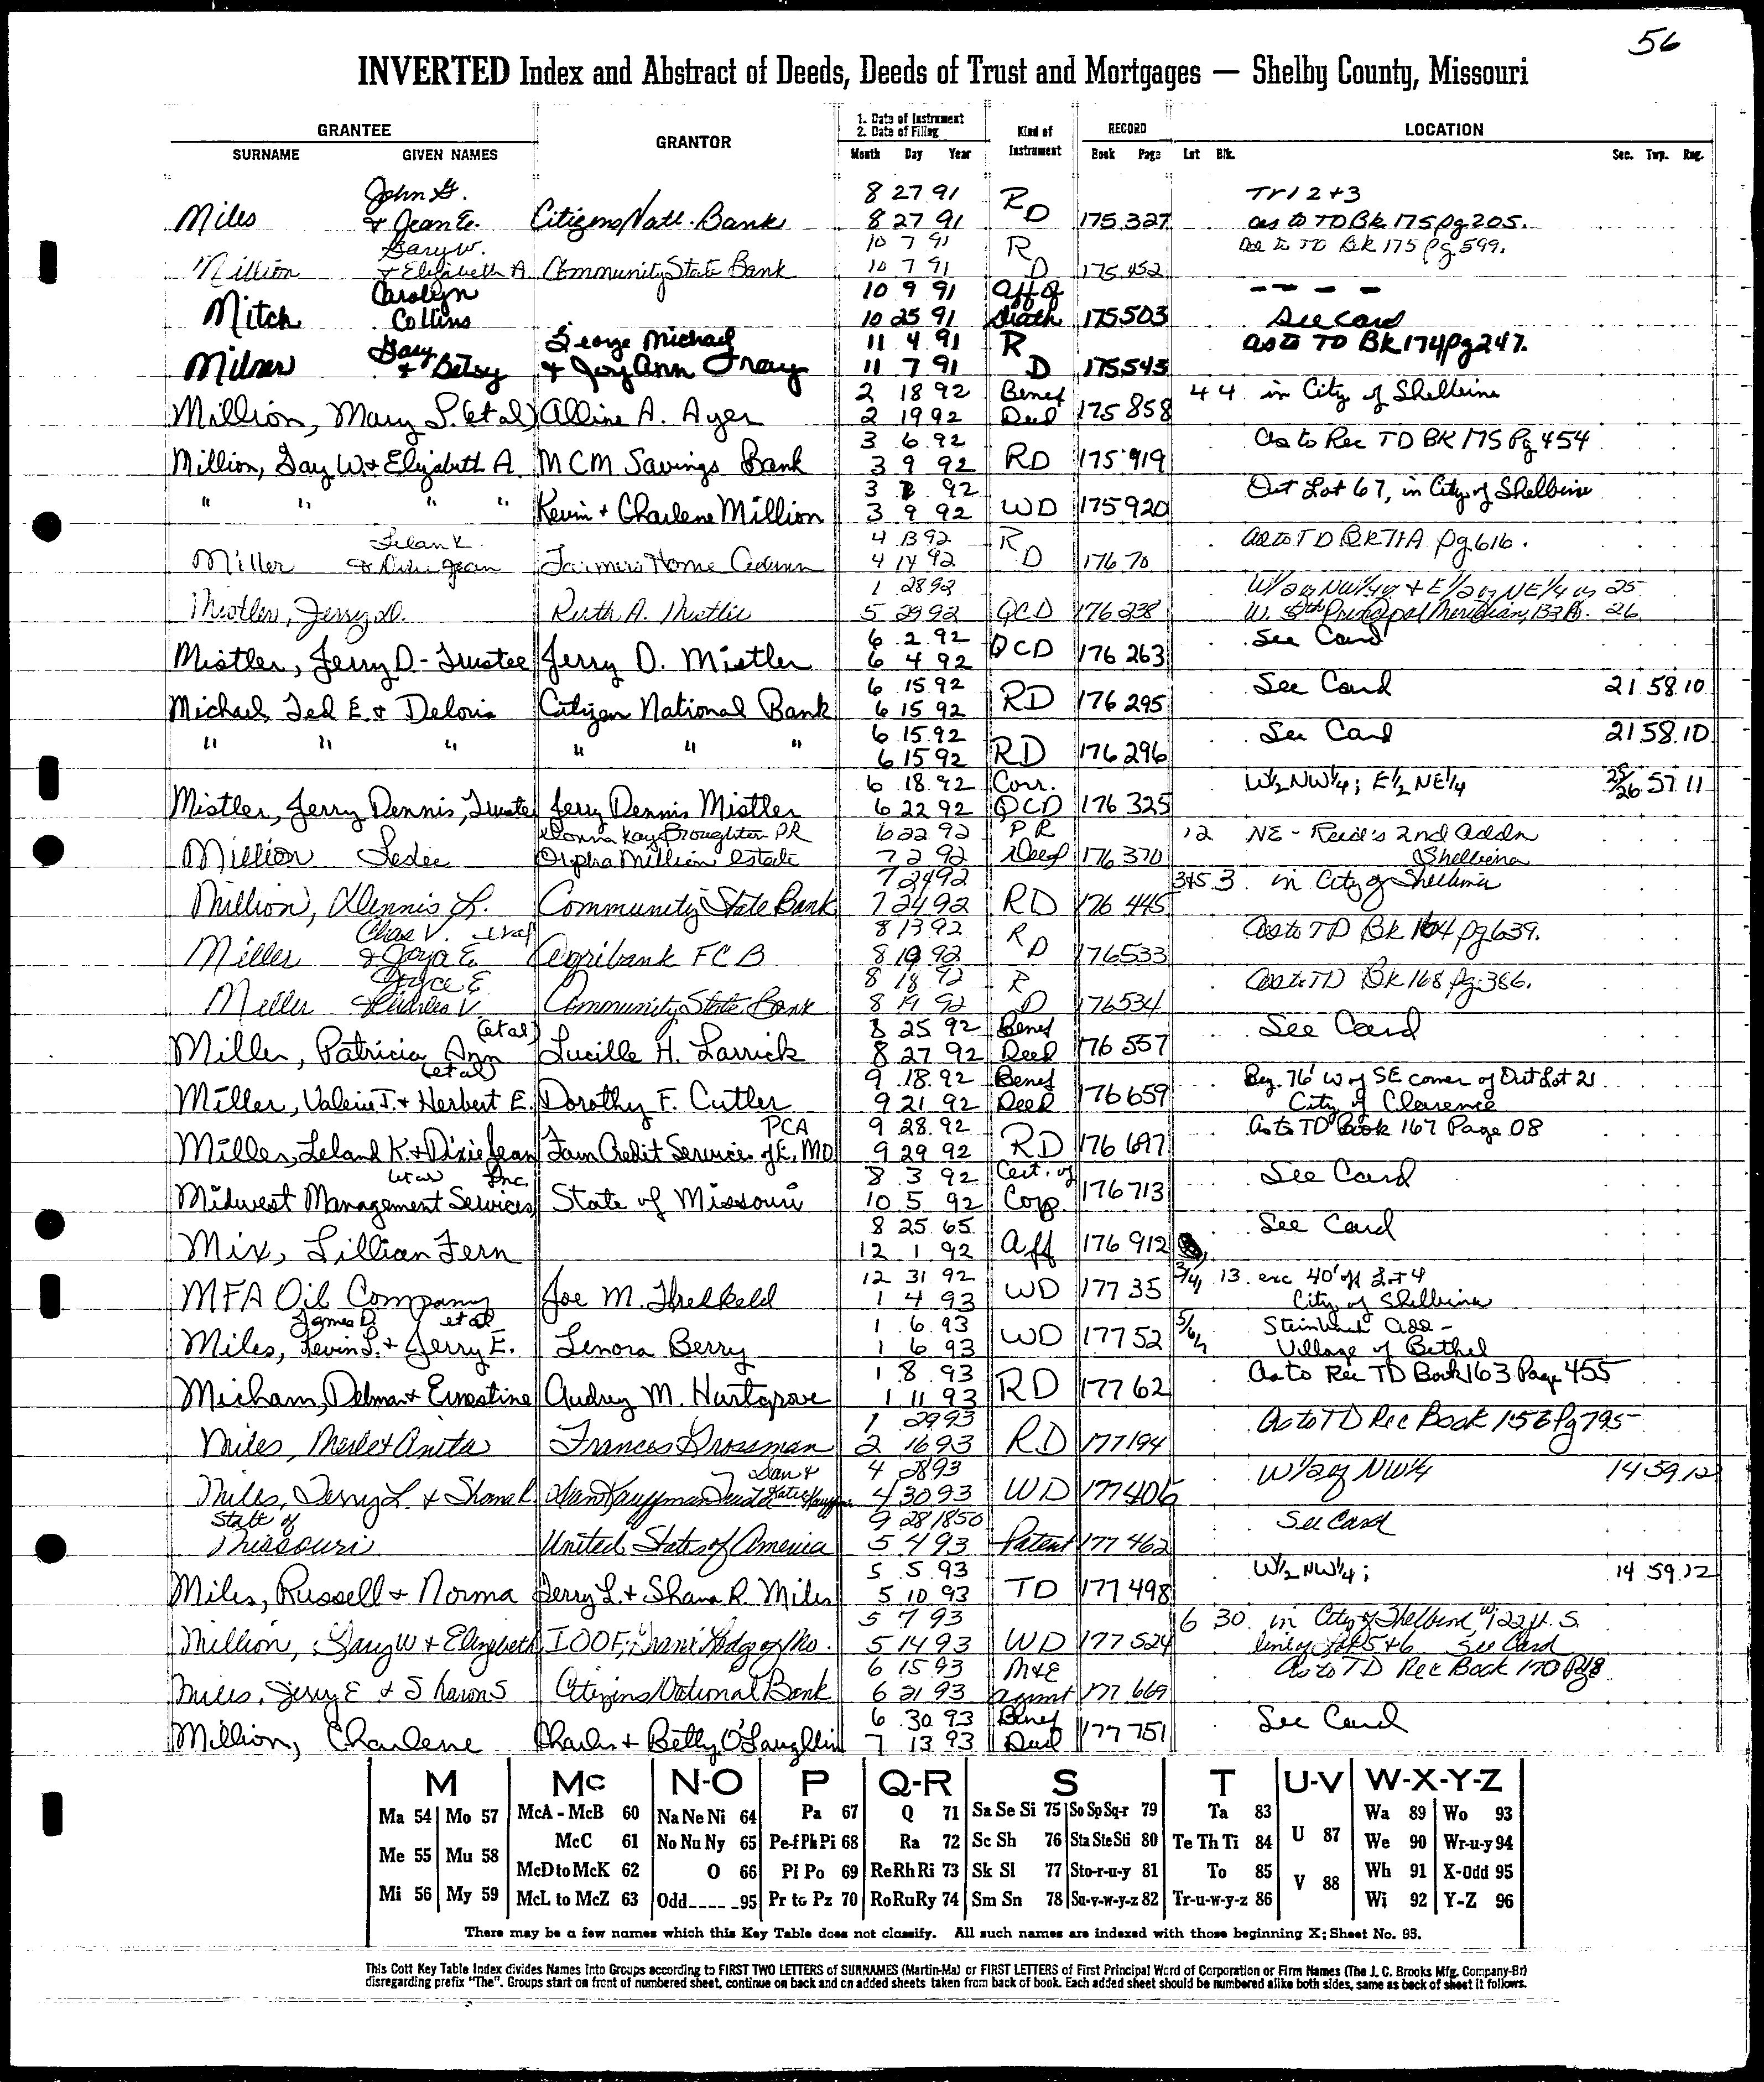 56
INVERTED Index and Abstract of Deeds, Deeds of Trust and Mortgages — Shelby County, Missouri
GRANTEE GRANTOR 1. Date of Instrument 2. Date of Filing Kind of Instrument RECORD LOCATION
SURNAME GIVEN NAMES Month Day Year Book Page Lot Blk. Sec. Twp. Rng.
John G. 8 27 91 R Tr 1 2 + 3
Miles & Jean E. Citizens Natl. Bank 8 27 91 D 175 327 as to TD Bk 175 pg 205.
Gary W. 10 7 91 R as to TD Bk 175 pg 599.
Million & Elizabeth A Community State Bank 10 7 91 D 175 452
Carolyn 10 9 91 Aff of - - - -
Mitch Collins 10 25 91 Death 175 503 See Card
Gary George Michael 11 4 91 R as to TD Bk 174 pg 247.
Milner & Betsy & Joy Ann Gray 11 7 91 D 175 543
2 18 92 Benef 4 4 in City of Shelbina
Million, Mary S. (et al) Alline A. Ayer 2 19 92 Deed 175 858
3 6 92 As to Rec TD BK 175 Pg 454
Million, Gay W & Elizabeth A. MCM Savings Bank 3 9 92 RD 175 919
3 92 Out Lot 67, in City of Shelbina
" " " " Kevin + Charlene Million 3 9 92 WD 175 920
Lelan K. 4 13 92 R as to TD BK 71A pg 616.
Miller & Dixie Jean Farmers Home Admn 4 14 92 D 176 70
1 28 92 W/2 of NW1/4 & E1/2 of NE1/4 25
Mistler, Jerry D. Ruth A. Mistler 5 29 92 QCD 176 238 W. 5th Principal Meridian, 26
6 2 92 See Card
Mistler, Jerry D - Trustee Jerry D. Mistler 6 4 92 QCD 176 263
6 15 92 See Card 21 58 10
Michael, Ted E. & Deloris Citizen National Bank 6 15 92 RD 176 295
6 15 92 See Card 21 58 10
" " " " " " 6 15 92 RD 176 296
6 18 92 Corr. W½ NW¼; E½ NE¼ 25/26 57 11
Mistler, Jerry Dennis, Trustee Jerry Dennis Mistler 6 22 92 QCD 176 325
Donna Kay Broughton PR 6 22 92 PR 12 NE - Reid's 2nd Addn
Million Leslie Orpha Million Estate 7 2 92 Deed 176 370 Shelbina
7 24 92 3 4 5 3 in City of Shelbina
Million, Dennis L. Community State Bank 7 24 92 RD 176 445
Chas V. et al 8 13 92 R as to TD Bk 164 pg 639.
Miller & Joya E Agribank FCB 8 19 92 D 176 533
Joyce E 8 18 92 R as to TD Bk 168 pg 386.
Miller & Charles V Community State Bank 8 19 92 D 176 534
(et al) 8 25 92 Benef See Card
Miller, Patricia Ann Lucille H. Larrick 8 27 92 Deed 176 557
(et al) 9 18 92 Benef Beg. 76' W of SE corner of Out Lot 21
Miller, Valerie J. + Herbert E. Dorothy F. Cutler 9 21 92 Deed 176 659 City of Clarence
PCA 9 28 92 As to TD Book 167 Page 08
Miller, Leland K. + Dixie Jean Farm Credit Services of E. MO 9 29 92 RD 176 697
et ux Inc. 8 3 92 Cert. of See Card
Midwest Management Services State of Missouri 10 5 92 Corp 176 713
8 25 65 See Card
Mix, Lillian Fern 12 1 92 Aff 176 912
12 31 92 3/4 13 exc 40' off Lot 4
MFA Oil Company Joe M. Threlkeld 1 4 93 WD 177 35 City of Shelbina
James D et al 1 6 93 5/6/7 Steinbach Add -
Miles, Kevin L. + Jerry E. Lenora Berry 1 6 93 WD 177 52 Village of Bethel
1 8 93 As to Rec TD Book 163 Page 455
Micham, Delmar + Ernestine Audrey M. Hartgrove 1 11 93 RD 177 62
1 29 93 As to TD Rec Book 156 Pg 795
Miles, Merle & Anita Frances Grossman 2 16 93 RD 177 194
Dan & 4 28 93 W/2 of NW¼ 14 59 12
Miles, Jerry L. & Shana R Dan Kauffman Trust Katie Kauffman 4 30 93 WD 177 406
State of 9 28 1850 See Card
Missouri United States of America 5 4 93 Patent 177 462
5 5 93 W½ NW¼; 14 59 12
Miles, Russell + Norma Jerry L. + Shana R. Miles 5 10 93 TD 177 498
5 7 93 6 30 in City of Shelbina, W 122 ft. S.
Million, Gary W & Elizabeth IOOF, Grand Lodge of Mo. 5 14 93 WD 177 524 line of Lot 5 & 6 See Card
6 15 93 M&E As to TD Rec Book 170 Pg 18
Miles, Jerry E & Sharon S Citizens National Bank 6 21 93 Agmnt 177 669
6 30 93 Benef See Card
Million, Charlene Charles + Betty O'Laughlin 7 13 93 Deed 177 751
M Mc N-O P Q-R S T U-V W-X-Y-Z
Ma 54 Mo 57 McA - McB 60 Na Ne Ni 64 Pa 67 Q 71 Sa Se Si 75 So Sp Sq-r 79 Ta 83 Wa 89 Wo 93
McC 61 No Nu Ny 65 Pe-f Ph Pi 68 Ra 72 Sc Sh 76 Sta Ste Sti 80 Te Th Ti 84 U 87 We 90 Wr-u-y 94
Me 55 Mu 58 McD to McK 62 O 66 Pl Po 69 Re Rh Ri 73 Sk Sl 77 Sto-r-u-y 81 To 85 V 88 Wh 91 X-Odd 95
Mi 56 My 59 McL to McZ 63 Odd 95 Pr to Pz 70 Ro Ru Ry 74 Sm Sn 78 Su-v-w-y-z 82 Tr-u-w-y-z 86 Wi 92 Y-Z 96
There may be a few names which this Key Table does not classify. All such names are indexed with those beginning X; Sheet No. 95.
This Cott Key Table Index divides Names into Groups according to FIRST TWO LETTERS of SURNAMES (Martin-Ma) or FIRST LETTERS of First Principal Word of Corporation or Firm Names (The J. C. Brooks Mfg. Company-Br)
disregarding prefix "The". Groups start on front of numbered sheet, continue on back and on added sheets taken from back of book. Each added sheet should be numbered alike both sides, same as back of sheet it follows.